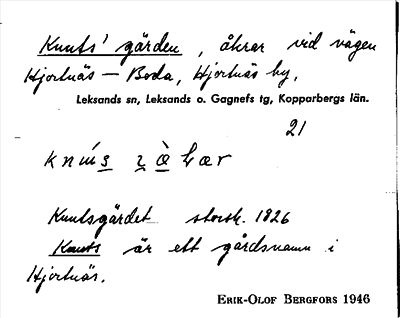 Knuts' gärden, åkrar vid vägen
Hjortnäs – Boda, Hjortnäs by,
Leksands sn, Leksands o. Gagnefs tg, Kopparbergs län.
21
Knutsgärdet storsk. 1826
Knuts är ett gårdsnamn i
Hjortnäs.
ERIK-OLOF BERGFORS 1946